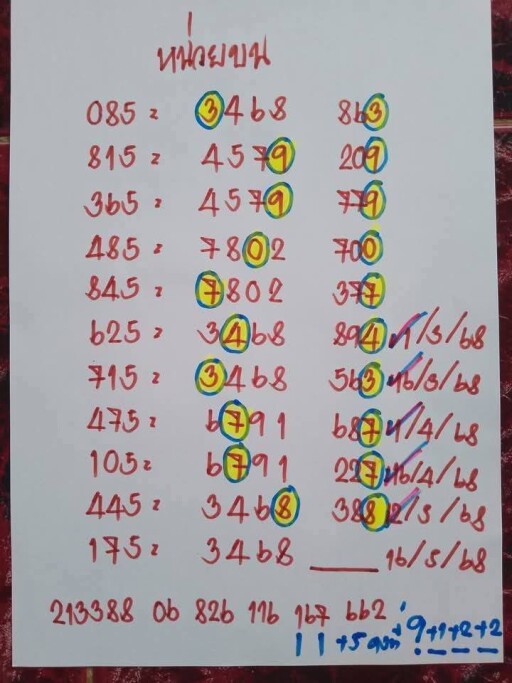 หน่วยบน
085 = 3468 863
815 = 4579 209
365 = 4579 779
485 = 7802 700
845 = 7802 377
625 = 3468 894 ✓1/3/68
715 = 3468 563 ✓16/3/68
475 = 6791 687 ✓1/4/68
105 = 6791 227 ✓16/4/68
445 = 3468 388 ✓2/5/68
175 = 3468 ____ 16/5/68
213388 06 826 116 167 662
11 +5 9+1+2+2